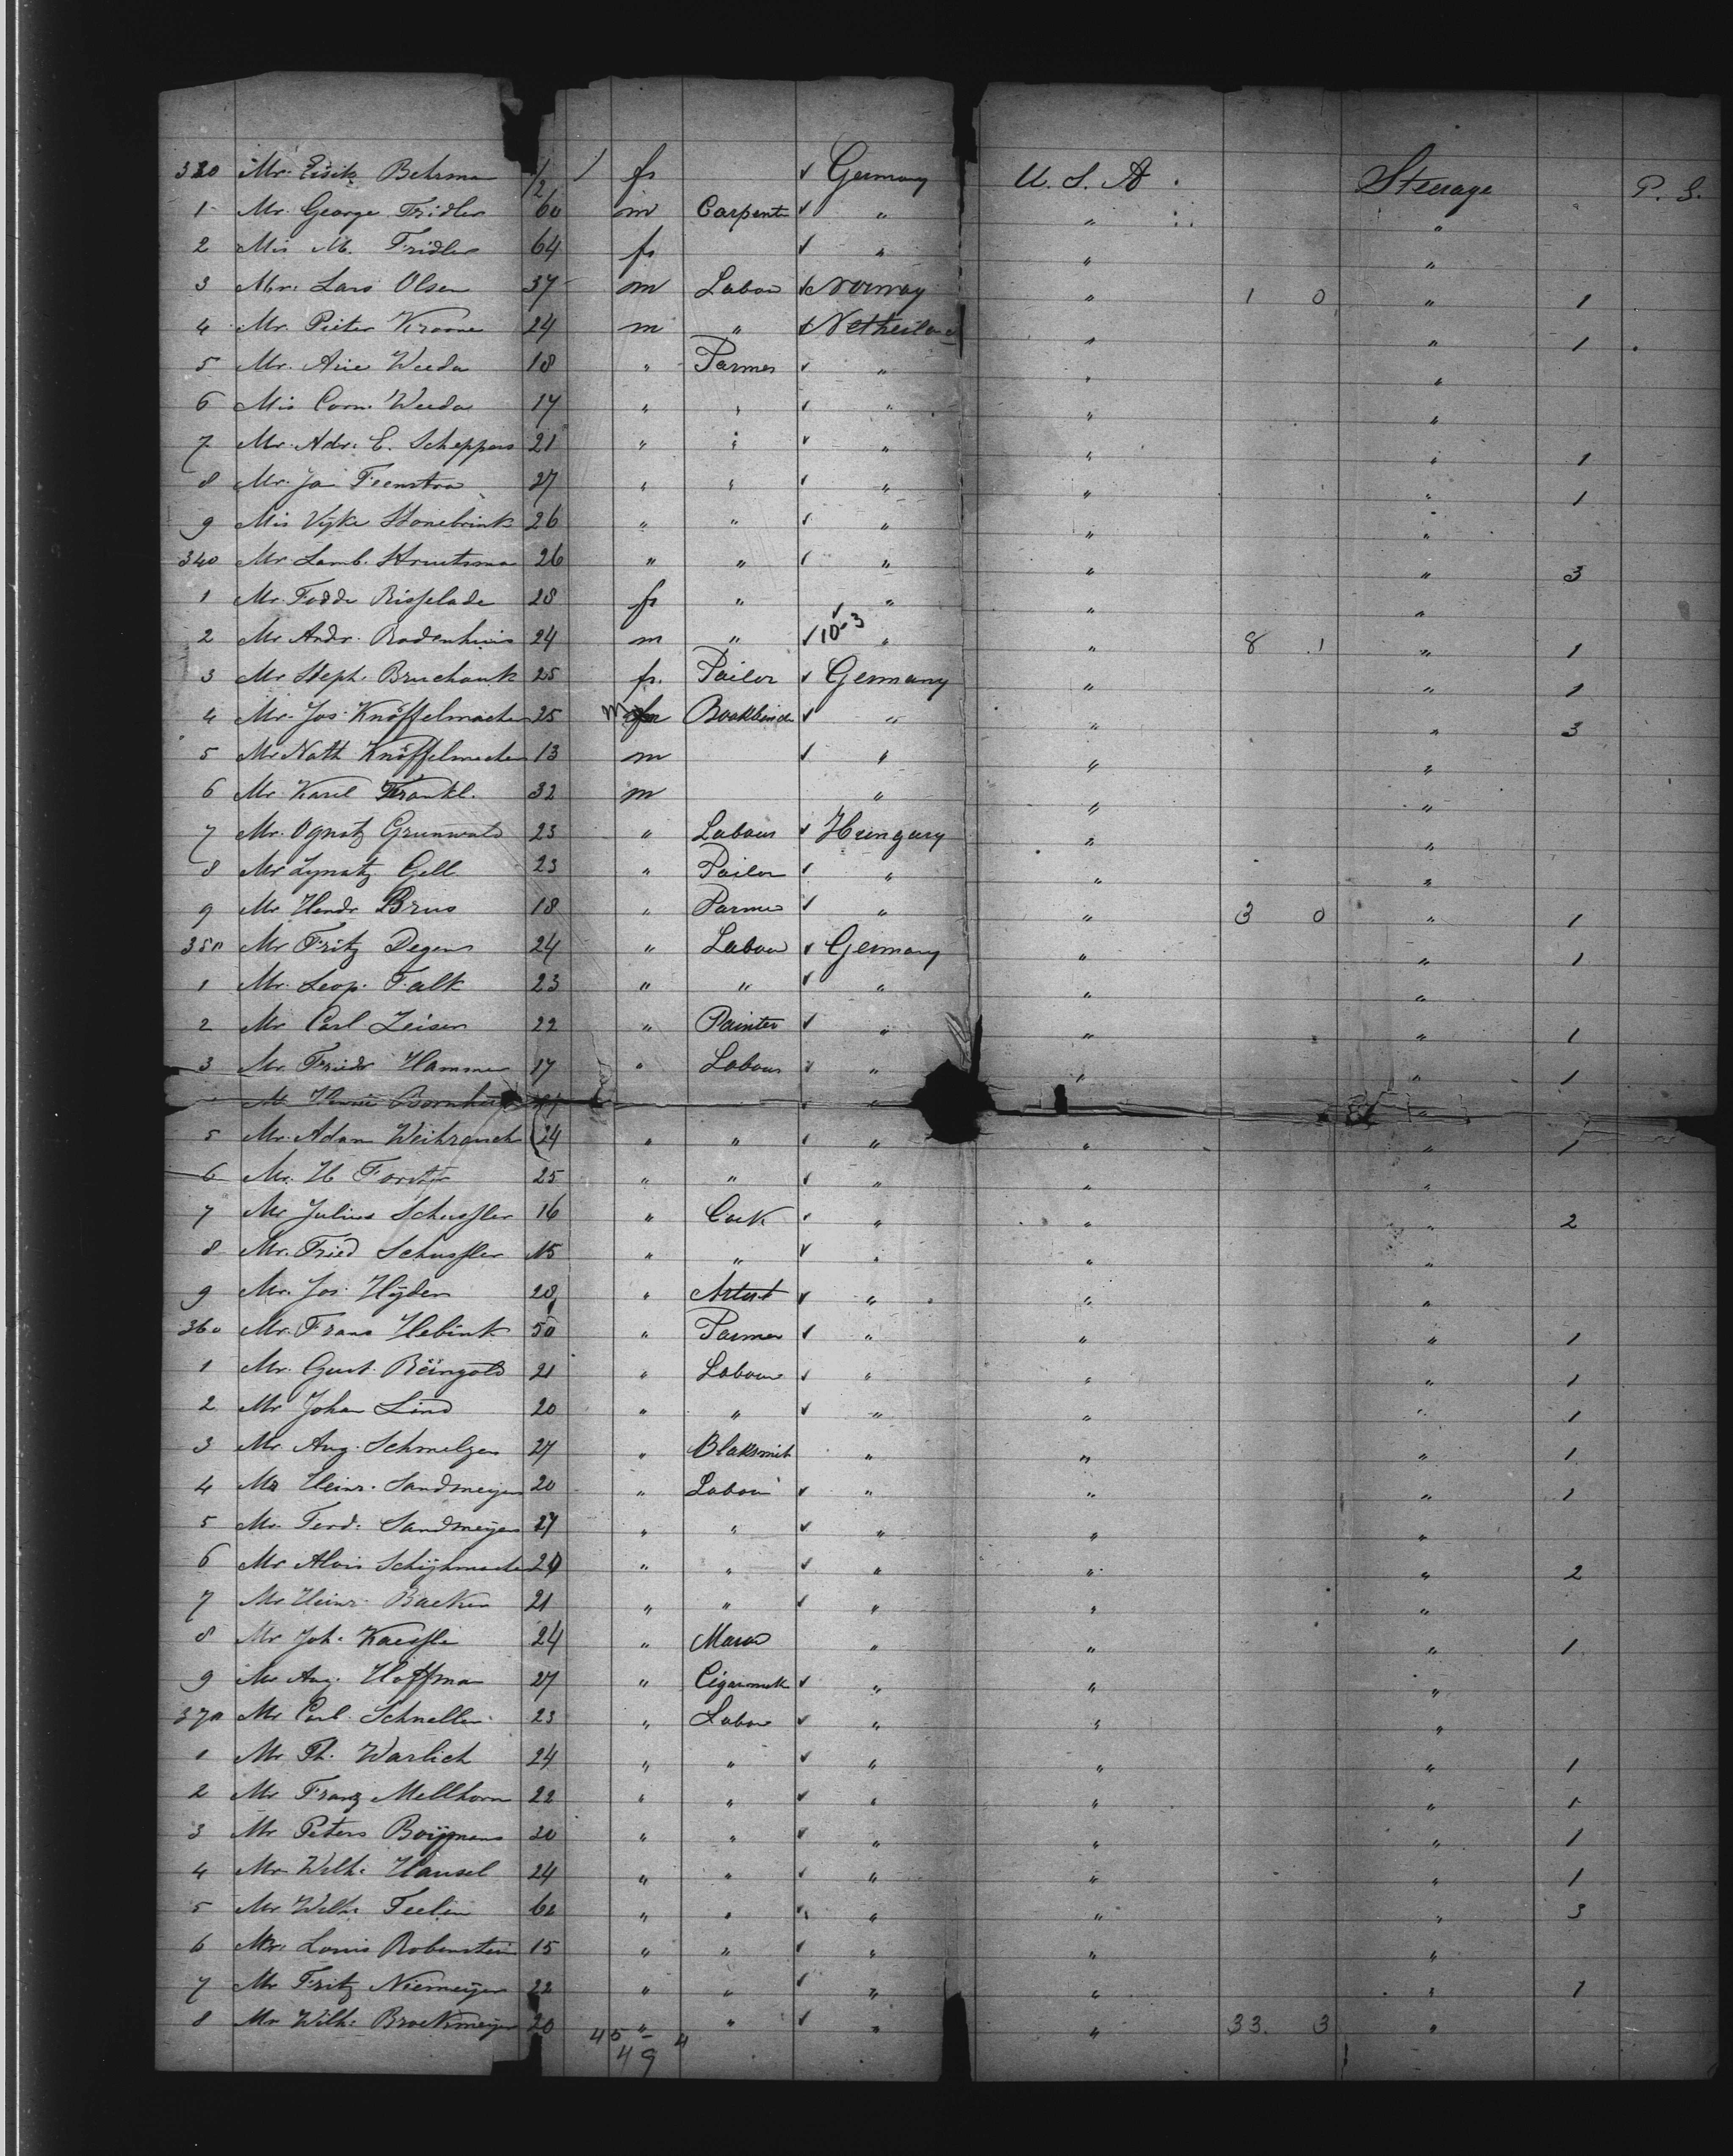 330 Mr. Eisik Behrman 1/2 1 fr ✓ Germany U. S. A. Steerage P. S.
1 Mr. George Fridler 60 m Carpente ✓ " " "
2 Mis M. Fridler 64 fr ✓ " " "
3 Mr. Lars Olsen 37 m Labou ✓ Norway " 1 0 " 1
4 Mr. Pieter Kroone 24 m " ✓ Netherland " " 1
5 Mr. Arie Weeda 18 " Farmer ✓ " " "
6 Mis Corn. Weeda 17 " " ✓ " " "
7 Mr. Adr. C. Scheppers 21 " " ✓ " " " 1
8 Mr. Ja Feenstra 27 " " ✓ " " " 1
9 Mis Vijke Stonebrink 26 " " ✓ " " "
340 Mr. Lamb. Struutsma 26 " " ✓ " " " 3
1 Mr. Fodde Risselade 28 fr " " " "
2 Mr Andr. Bodenhuis 24 m " ✓ 10-3 " " 8 1 " 1
3 Mr Steph. Bruchank 25 fr. Tailor ✓ Germany " " 1
4 Mr. Jos. Knöffelmacher 25 m Bookbinde ✓ " " " 3
5 Mr Nath Knöffelmacher 13 m ✓ " " "
6 Mr. Karel Frankl. 32 m " " "
7 Mr. Ognatz Grunwald 23 " Labour ✓ Hungary " "
8 Mr Lynatz Gell 23 " Tailor ✓ " " "
9 Mr Hendr Brus 18 " Farmer ✓ " " 3 0 " 1
350 Mr Fritz Degen 24 " Labour ✓ Germany " " 1
1 Mr. Leop. Falk 23 " " ✓ " " "
2 Mr Carl Zeiser 22 " Painter ✓ " " " 1
3 Mr. Friedr Hammer 17 " Labour ✓ " " " 1
Mr ✓ " "
5 Mr. Adam Weihrauch 24 " " ✓ " " " 1
6 Mr. H Forster 25 " " ✓ " " "
7 Mr Julius Schussler 16 " Cook ✓ " " " 2
8 Mr. Fried Schussler 15 " " ✓ " " "
9 Mr. Jos. Hÿder 28 " Artist ✓ " " "
360 Mr. Frans Hebink 50 " Farmer ✓ " " " 1
1 Mr. Gust. Reingold 21 " Labour ✓ " " " 1
2 Mr Johan Lind 20 " " ✓ " " " 1
3 Mr. Aug. Schmelzer 27 " Blaksmit " " " 1
4 Mr Heinr. Sandmeyer 20 " Labour ✓ " " " 1
5 Mr. Ferd. Sandmeyer 27 " " ✓ " " "
6 Mr Alois 20 " " ✓ " " " 2
7 Mr Heinr. Backer 21 " " ✓ " " "
8 Mr Joh. Kaessli 24 " Mason " " " 1
9 Mr Aug. Hoffman 27 " Cigarmak ✓ " " "
370 Mr Carl. Schneller 23 " Labour ✓ " " "
1 Mr Th. Warlich 24 " " ✓ " " " 1
2 Mr Franz Mellhorn 22 " " ✓ " " " 1
3 Mr Peters Boÿmans 20 " " ✓ " " " 1
4 Mr Wilh. Hansel 24 " " ✓ " " " 1
5 Mr Wilh. Feelin 62 " " ✓ " " " 3
6 Mr. Louis Robenstein 15 " " ✓ " " "
7 Mr Fritz Niemeyer 22 " " ✓ " " " 1
8 Mr Wilh. Brockmeyer 20 " " ✓ " " 33. 3 "
45 - 4
49